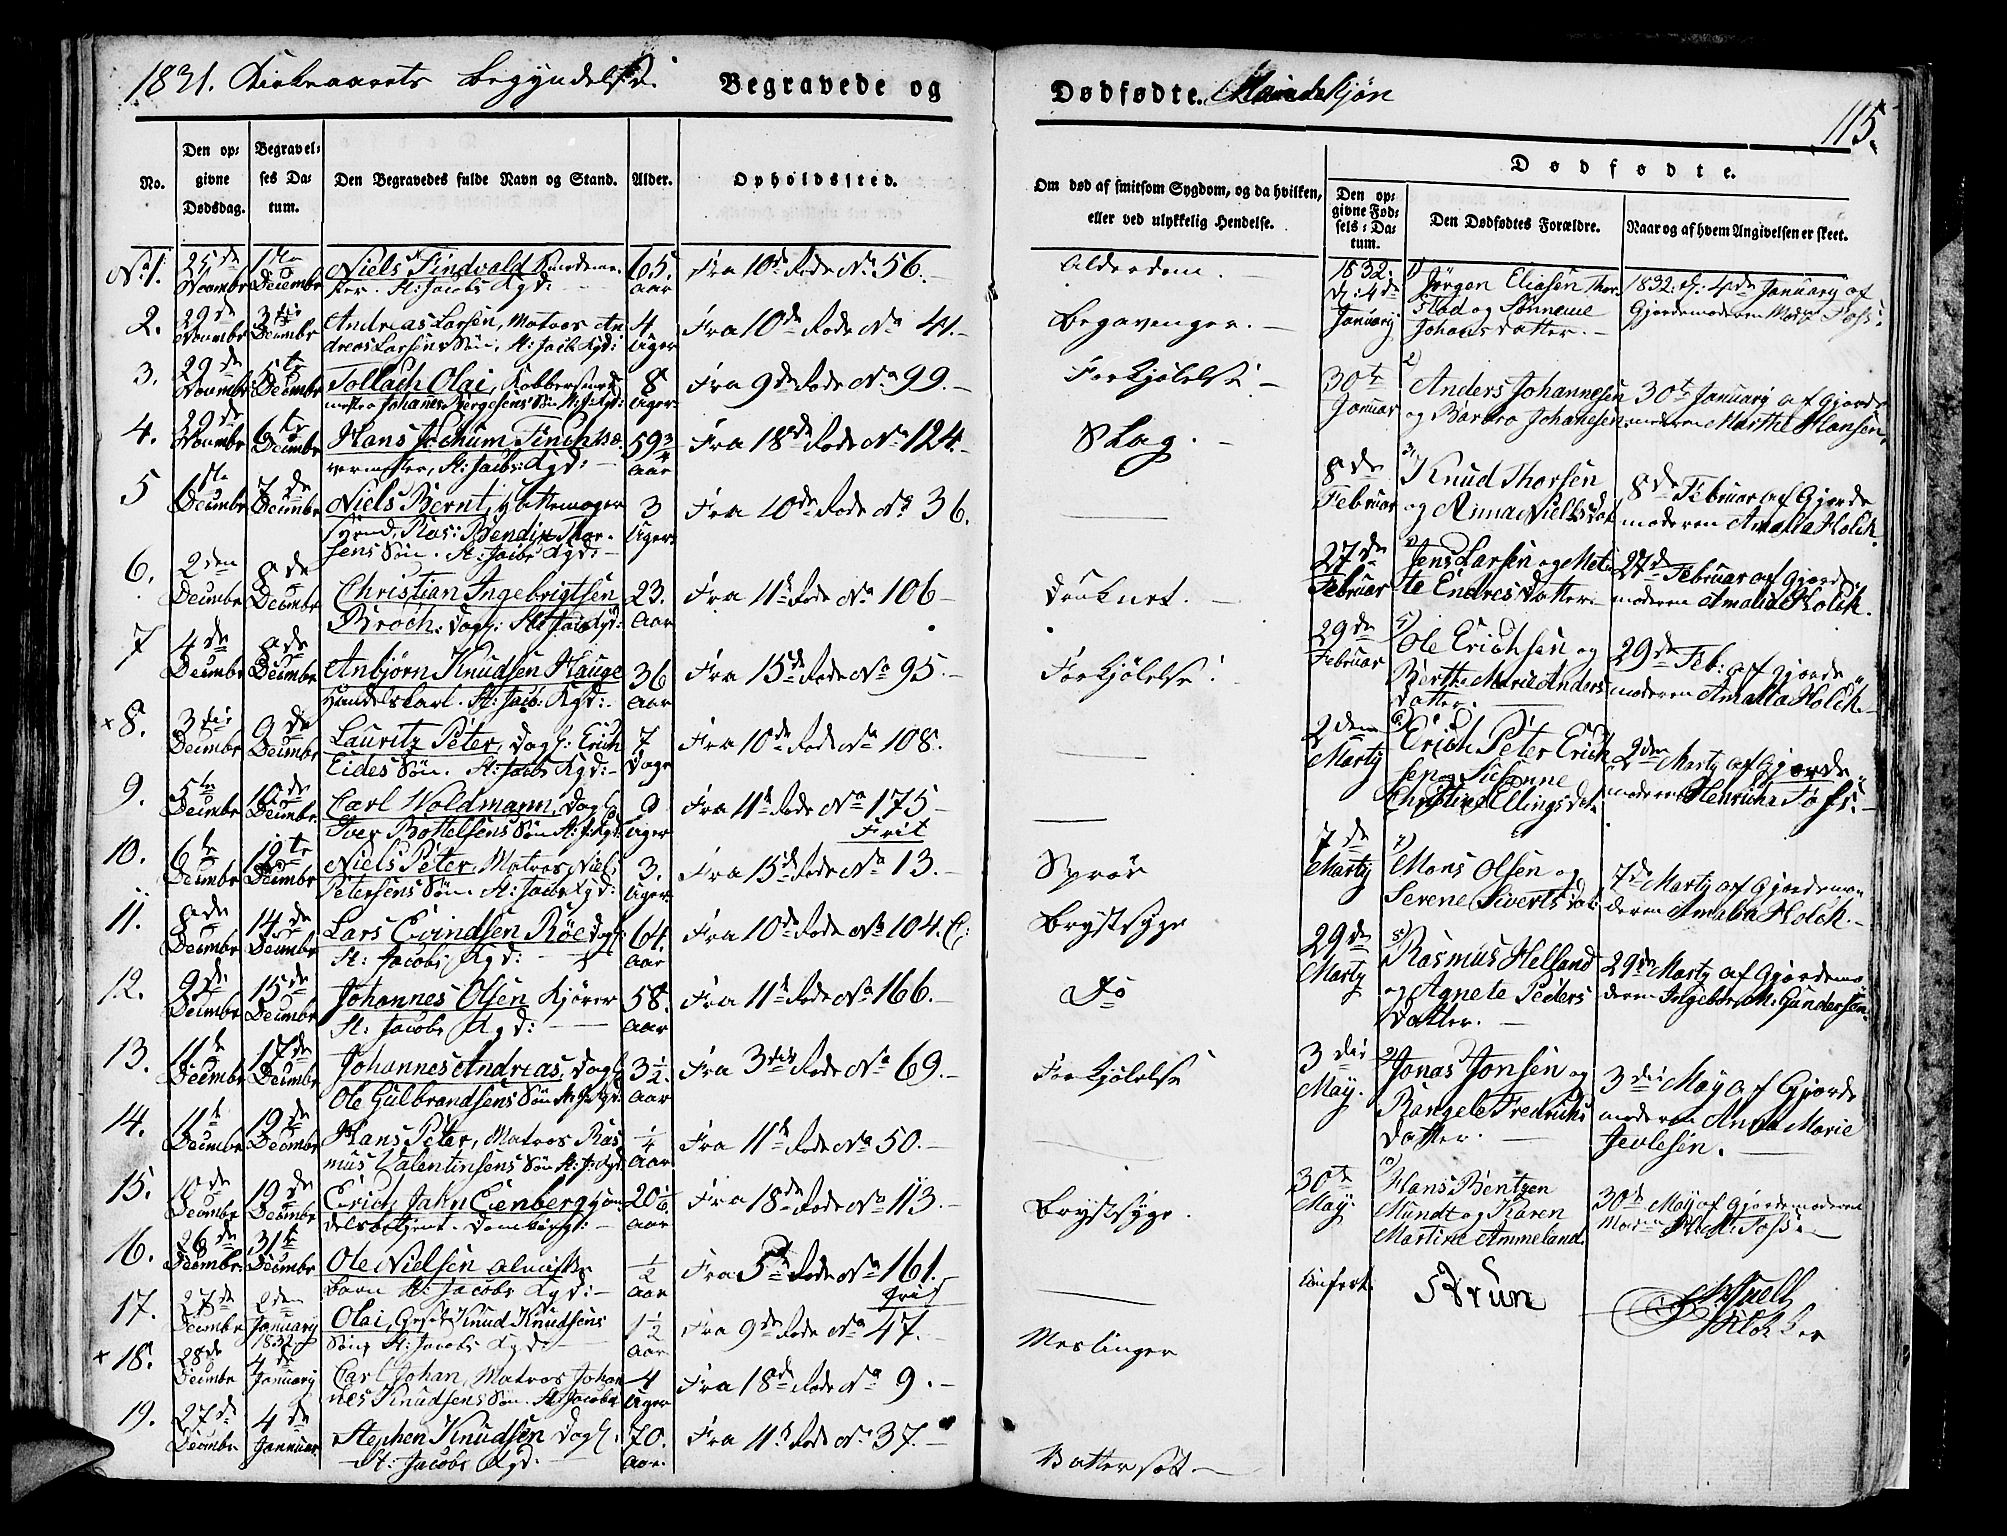 1831. Kirkeaarets Begyndelse.
Begravede og
Dødfødte. Mandekjøn
115.
No.
Den opgivne Dødsdag.
Begravelses Datum.
Den Begravedes fulde Navn og Stand.
Alder.
Opholdssted.
Om død af smitsom Sygdom, og da hvilken, eller ved ulykkelig Hendelse.
Dødfødte.
Den opgivne Fødsels-Datum.
Den Dødfødtes Forældre.
Naar og af hvem Angivelsen er skeet.
No 1. 25de Novembr 1ste Decembr Niels Findvald St: Jacobs Kgd: 65 Aar Fra 10de Rode No 56. Alderdom.
2. 29de Novembr 3die Decembr Andreas Larsen, Matros Andreas Larsens Søn, St: Jacobs Kgd: 4 Uger Fra 10de Rode No 41.
3. 29de Novembr 5te Decembr Tollach Olai, Kobbersmed Johannes Børgesens Søn St: J: Kgd: 8 Uger Fra 9de Rode No 99. Forkjølelse
4. 29de Novembr 6te Decembr Hans Jochum Finch St: Jacobs: Kgd: 59 3/4 Aar Fra 18de Rode No 124. Slag.
5 1ste Decembr 7de Decembr Niels Bernt, Hattemager svend, Ras: Bendix Thorsens Søn. St: Jacobs Kgd: 3 Uger Fra 10de Rode No 36.
6. 2den Decembr 8de Decembr Christian Ingebrigtsen Broch. Dagl: St: Jacobs Kgd: 23. Aar Fra 11te Rode No 106 Druknet.
7 4de Decembr 9de Decembr Anbjørn Knudsen Hauge Handelskarl. St: Jacob: Kgd: 36 Aar Fra 15de Rode No 95. Forkjølelse
× 8. 3die Decembr 9de Decembr Lauritz Peter, Dagl: Erich Eides Søn. St: Jacobs Kgd: 7 Dage Fra 10de Rode No 108.
9. 5te Decembr 10de Decembr Carl Woldmann, Dagl: Iver Bottelsens Søn St: J: Kgd: 9 Uger Fra 11te Rode No 175 Frit
10. 6te Decembr 12te Decembr Niels Peter, Matros Niels Petersens Søn. St: Jacobs Kgd: 3. Uger Fra 15de Rode No 13.
11. 8de Decembr 14de Decembr Lars Evindsen Röe Dagl: St: Jacobs Kgd: 64. Aar Fra 10de Rode No 104. Brystsyge
12. 9de Decembr 15de Decembr Johannes Olsen Kjører St: Jacobs Kgd: 58. Aar Fra 11te Rode No 166. Do
13. 11te Decembr 17de Decembr Johannes Andreas, Dagl: Ole Gulbrandsens Søn St: J: Kgd: 3 1/2 Aar Fra 3die Rode No 69. Forkjølelse
14. 11te Decembr 19de Decembr Hans Peter, Matros Rasmus Valentinsens Søn St: J: Kgd: 1/4 Aar Fra 11te Rode No 50.
15. 10de Decembr 19de Decembr Erich Jahn Eienberg Handelsbetjent. 20 1/6 Aar Fra 18de Rode No 113. Brystsyge.
16. 26de Decembr 31te Decembr Ole Nielsen Almisse barn St: Jacobs Kgd: 1/2 Aar Fra 5te Rode No 161. frit
17. 27de Decembr 2den January 1832 Olai, Knud Knudsens Søn, St: Jacobs Kgd: 1 1/2 Aar Fra 9de Rode No 47. Meslinger
× 18. 28de Decembr 4de January Carl Johan, Matros Johannes Knudsens Søn. St: Jacobs 4 Uger Fra 18de Rode No 9.
19. 27de Decembr 4de Januar Stephen Knudsen Dagl: St: Jacobs Kgd: 70. Aar Fra 11te Rode No 37. Vattersot
1832. d: 4de January 1) Jørgen Eliasen Thorstad og Sønneve Johansdatter. 1832. d: 4de January af Gjordemoderen
30te Januar 2) Anders Johannesen og Barbro Johanesen. 30te January af Gjordemoderen Marthe Hansen.
8de Februar 3) Knud Thorsen og Anna Nielsdat. 8de Februar af Gjordemoderen Amalia Holck.
27de Februar Jens Larsen og Mette Endresdatter. 27de Februar af Gjordemoderen Amalia Holck.
29de Februar 5) Ole Erichsen og Berthe Marie Andersdatter. 29de Feb: af Gjordemoderen Amalia Holck.
2den Marty 6) Erich Peter Erichsen og Susanne Christine Ellingsdat. 2den Marty af Gjordemoderen
7de Marty 7) Mons Olsen og Serene Sivertsdat. 7de Marty af Gjordemoderen Amalia Holck.
29de Marty 8) Rasmus Helland og Agnete Pedersdatter. 29de Marty af Gjordemoderen Ingebor M: Gundersen.
3die May. 9) Jonas Jonsen og Rangele Fredriksdatter. 3die May af Gjordemoderen Anna Marie Jevlesen.
30te May. 10) Hans Bentzen Mundt og Karen Martine Ammeland. 30te May af Gjordemoderen
Confert. Krun